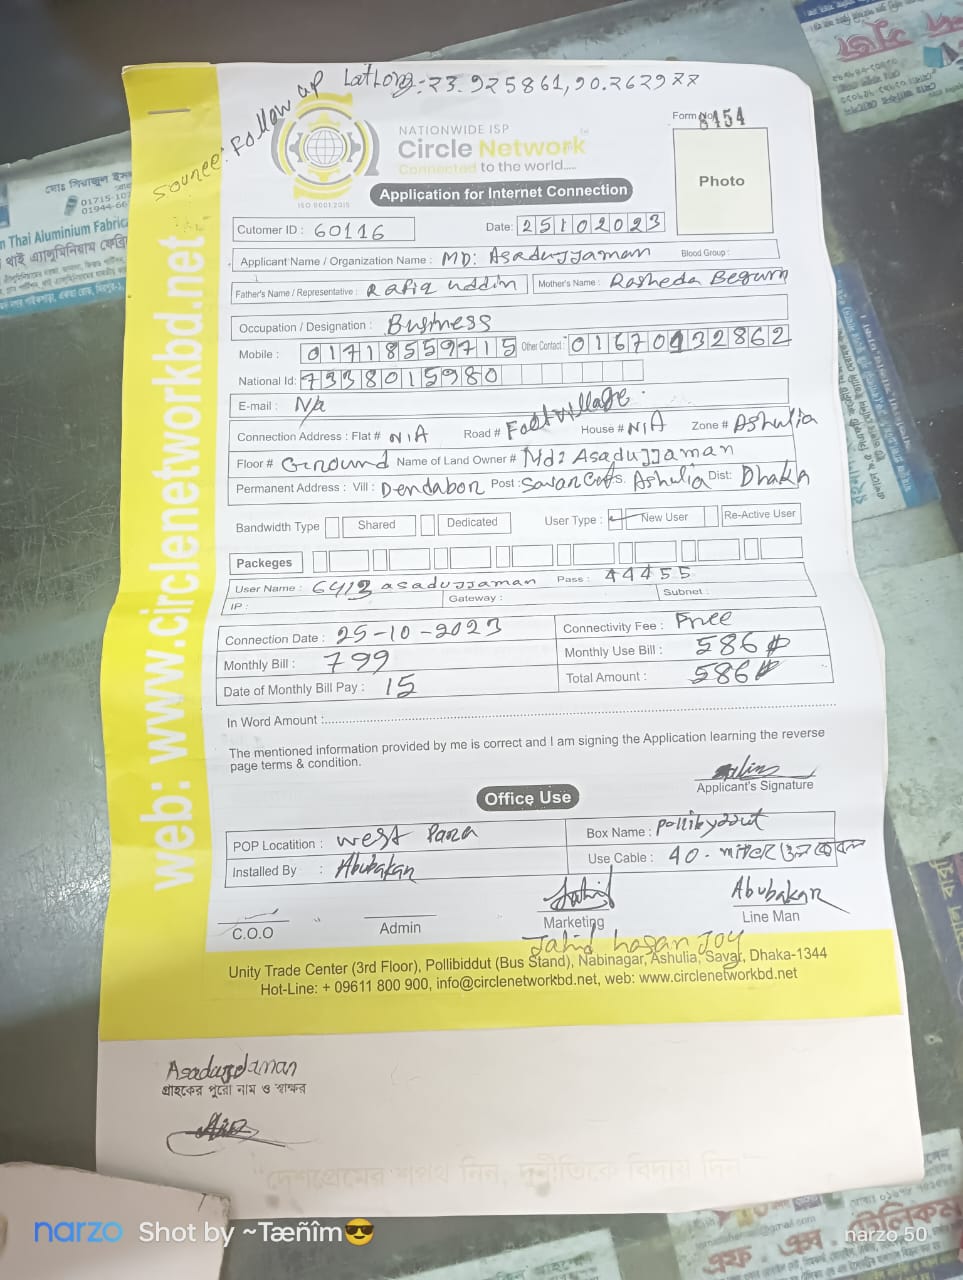 Source: Follow up LatLong:-23.925861,90.262977
Form No 8454
NATIONWIDE ISP
Circle Network
Connected to the world.....
ISO 9001:2015
Application for Internet Connection
Photo
Cutomer ID : 60116 Date: 25102023
Applicant Name / Organization Name : MD: Asadujjaman Blood Group :
Father's Name / Representative : Rafiq uddin Mother's Name : Rasheda Begum
Occupation / Designation : Business
Mobile : 01718559715 Other Contact : 01670132862
National Id: 7338015980
E-mail : N/a
Connection Address : Flat # N/A Road # House # N/A Zone # Ashulia
Floor # Ground Name of Land Owner # Md: Asadujjaman
Permanent Address : Vill : Dendabor Post : Savar Ashulia Dist: Dhaka
Bandwidth Type Shared Dedicated User Type : New User Re-Active User
Packeges
User Name : 6413 asadujjaman Pass : 44455
IP : Gateway : Subnet :
Connection Date : 25-10-2023 Connectivity Fee : Free
Monthly Bill : 799 Monthly Use Bill : 586
Date of Monthly Bill Pay : 15 Total Amount : 586
In Word Amount :
The mentioned information provided by me is correct and I am signing the Application learning the reverse
page terms & condition.
Applicant's Signature
Office Use
POP Locatition : west Para Box Name :
Installed By : Abubakar Use Cable : 40
Jahid Abubakar
C.O.O Admin Marketing Line Man
Jahid hasan Joy
Unity Trade Center (3rd Floor), Pollibiddut (Bus Stand), Nabinagar, Ashulia, Savar, Dhaka-1344
Hot-Line: + 09611 800 900, info@circlenetworkbd.net, web: www.circlenetworkbd.net
web: www.circlenetworkbd.net
গ্রাহকের পুরো নাম ও স্বাক্ষর
"দেশপ্রেমের শপথ নিন, দুর্নীতিকে বিদায় দিন"
narzo Shot by ~Tæñîm😎
narzo 50